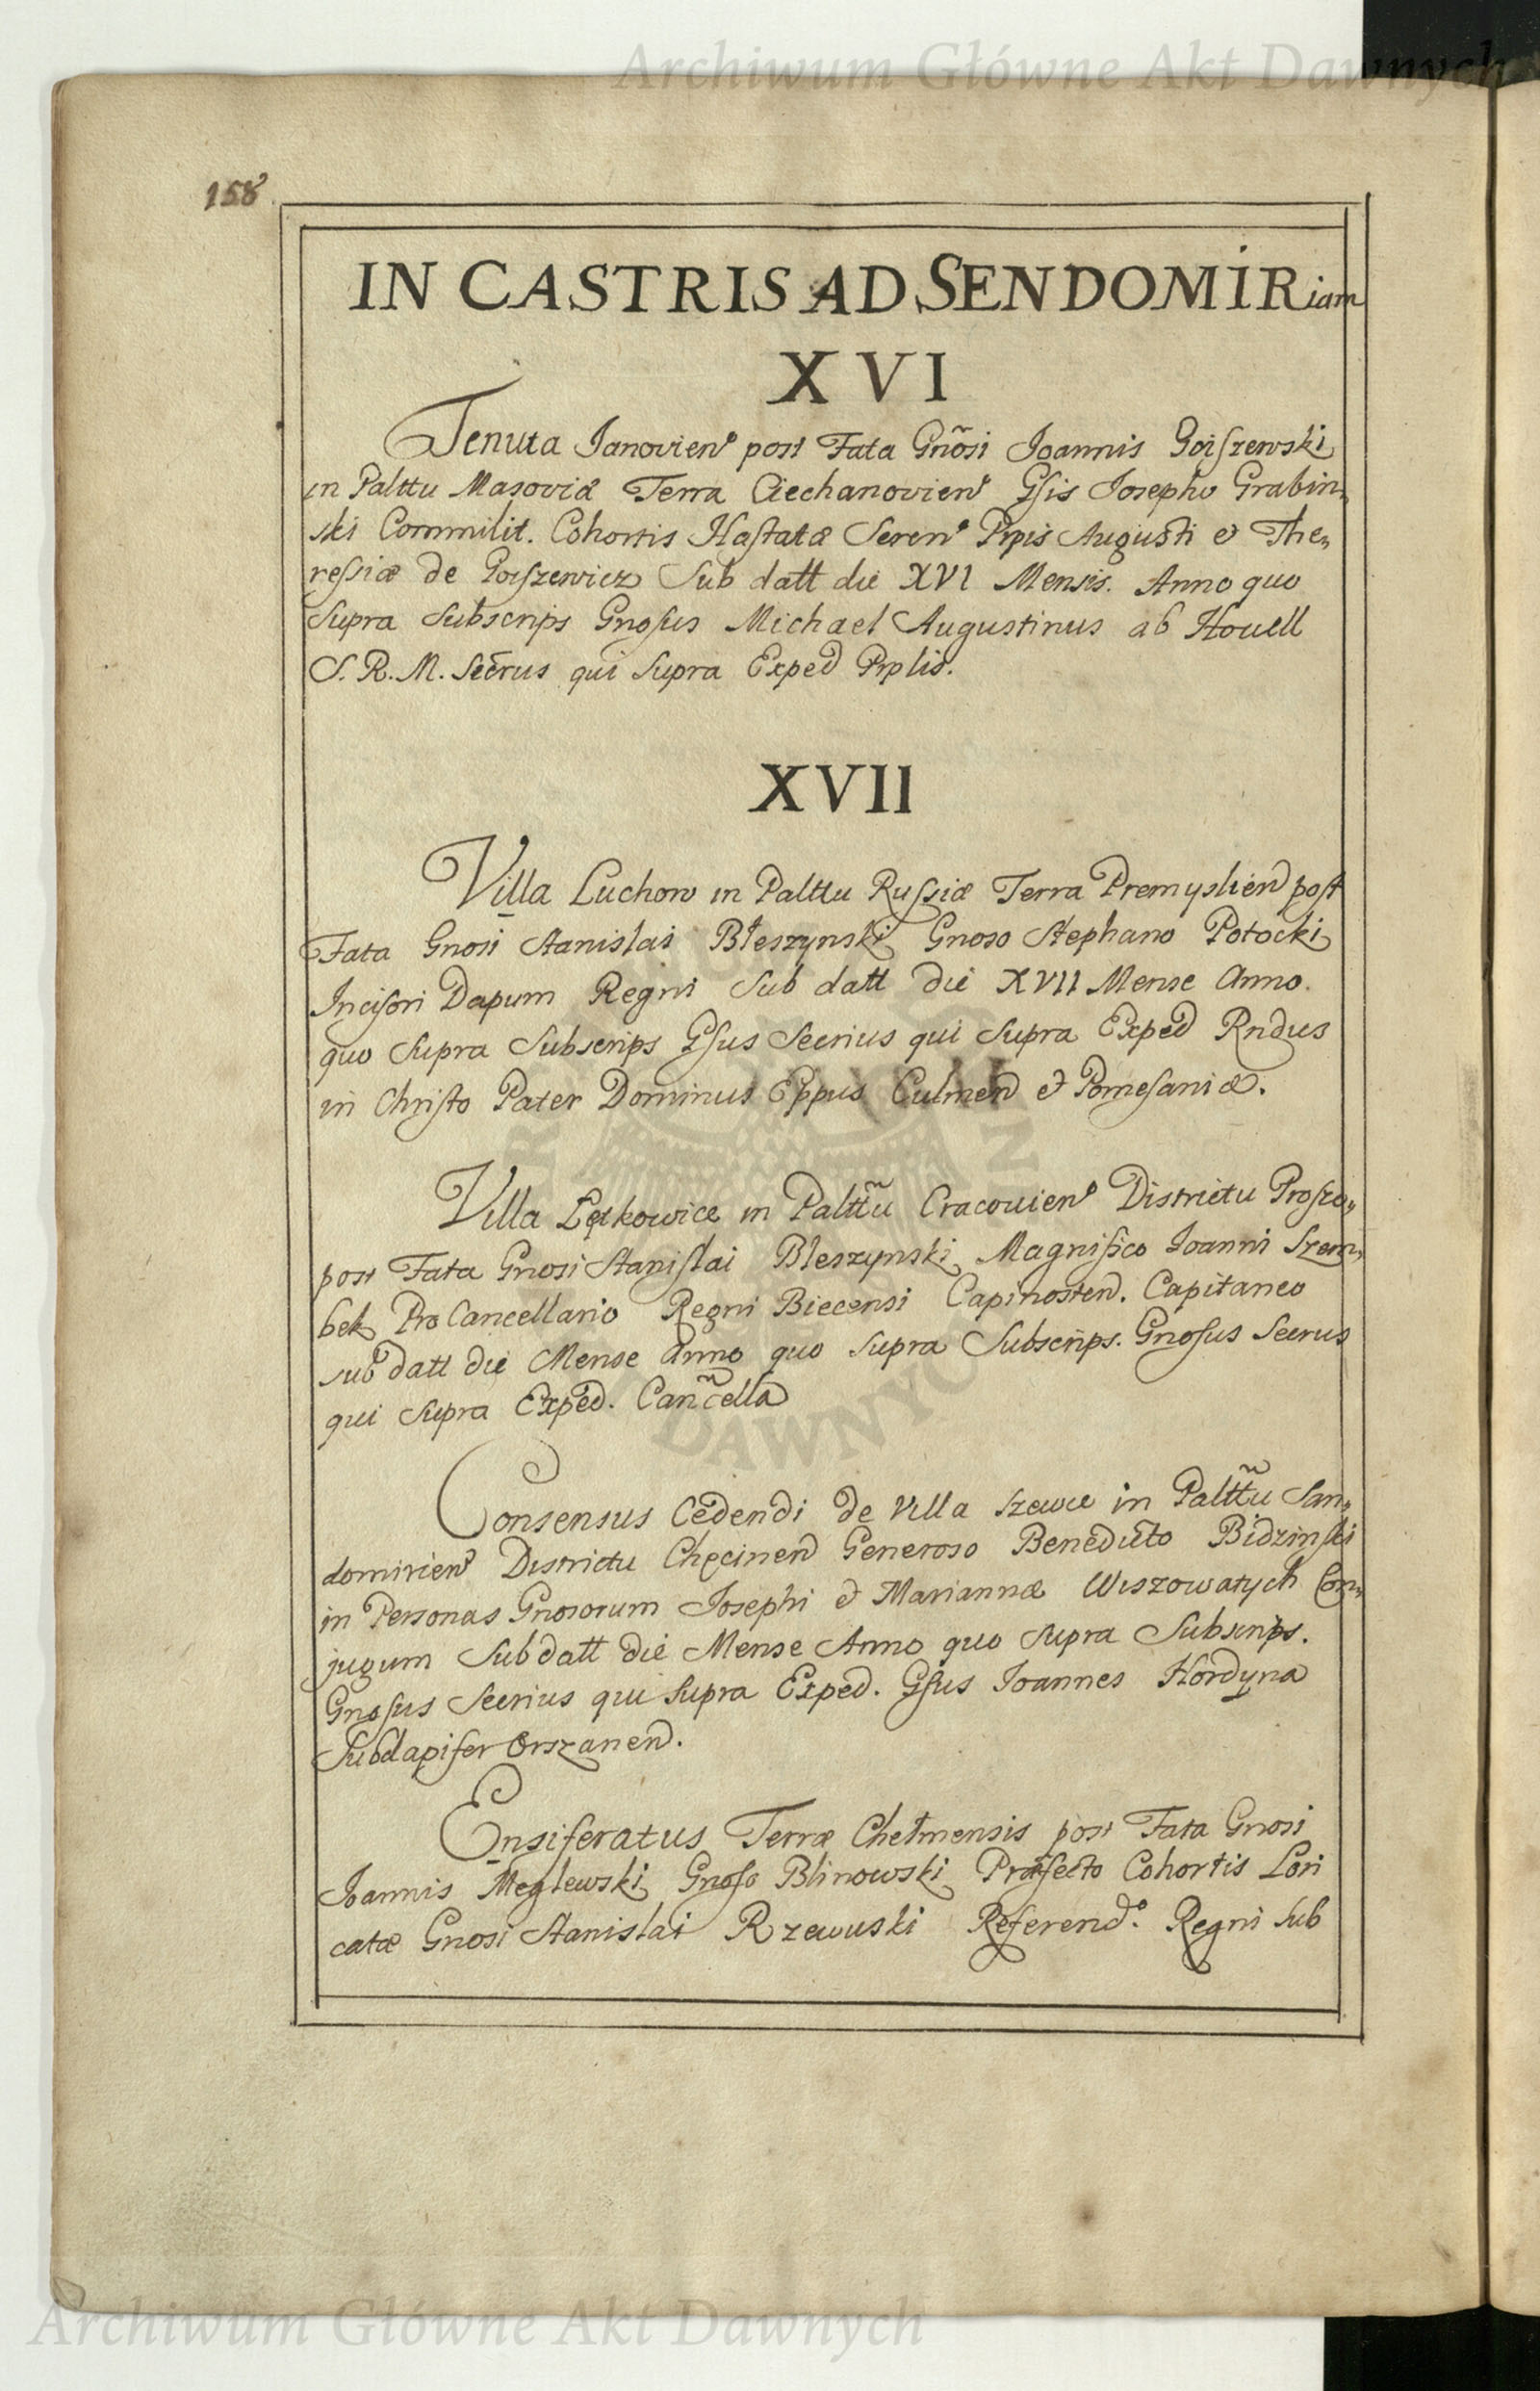 Archiwum Główne Akt Dawnych
158
IN CASTRIS AD SENDOMIRiam
XVI
Tenuta Janovien post Fata Gnosi Joannis Goiszewski
in Palttu Masoviæ Terra Ciechanovien Gsis Josepho Grabin„
ski Commilit. Cohortis Hastatæ Seren Prpis Augusti et The„
ressiæ de Goiszewicz Sub datt die XVI Mensis. Anno quo
Supra Subscrips Gnosus Michael Augustinus ab Houell
S. R. M. Secrus qui Supra Exped Prplis.
XVII
Villa Luchow in Palttu Russiæ Terra Premyslien post
Fata Gnosi Stanislai Błeszynski Gnoso Stephano Potocki
Incisori Dapum Regni Sub datt die XVII Mense Anno.
quo Supra Subscrips Gsus Secrius qui Supra Exped Rndus
in Christo Pater Dominus Eppus Culmen et Pomesaniæ.
Villa Łętkowice in Palttu Cracouien Districtu Proszo„
post Fata Gnosi Stanislai Błeszynski Magnifico Joanni Szem„
bek ProCancellario Regni Biecensi Capitaneo
sub datt die Mense Anno quo Supra Subscrips. Gnosus Secrus
qui Supra Exped. Cancella
Consensus Cedendi de Villa Szewce in Palttu San„
domirien Districtu Chęcinen Generoso Benedicto Bidzinski
in Personas Gnosorum Josephi et Mariannæ Wiszowatych Con„
jugum Sub datt die Mense Anno quo Supra Subscrips.
Gnosus Secrius qui Supra Exped. Gsus Joannes Hordyna
Subdapifer Orszanen.
Ensiferatus Terræ Chełmensis post Fata Gnosi
Joannis Męglewski Gnoso Blinowski Præfecto Cohortis Lori
catæ Gnosi Stanislai Rzewuski Referend. Regni Sub
Archiwum Główne Akt Dawnych